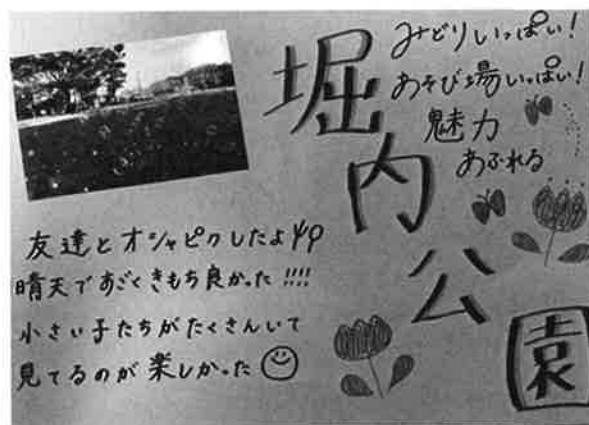 みどりいっぱい!
あそび場いっぱい!
魅力
あふれる
堀内公園
友達とオシャピクしたよ
晴天ですごくきもち良かった!!!!
小さい子たちがたくさんいて
見てるのが楽しかった